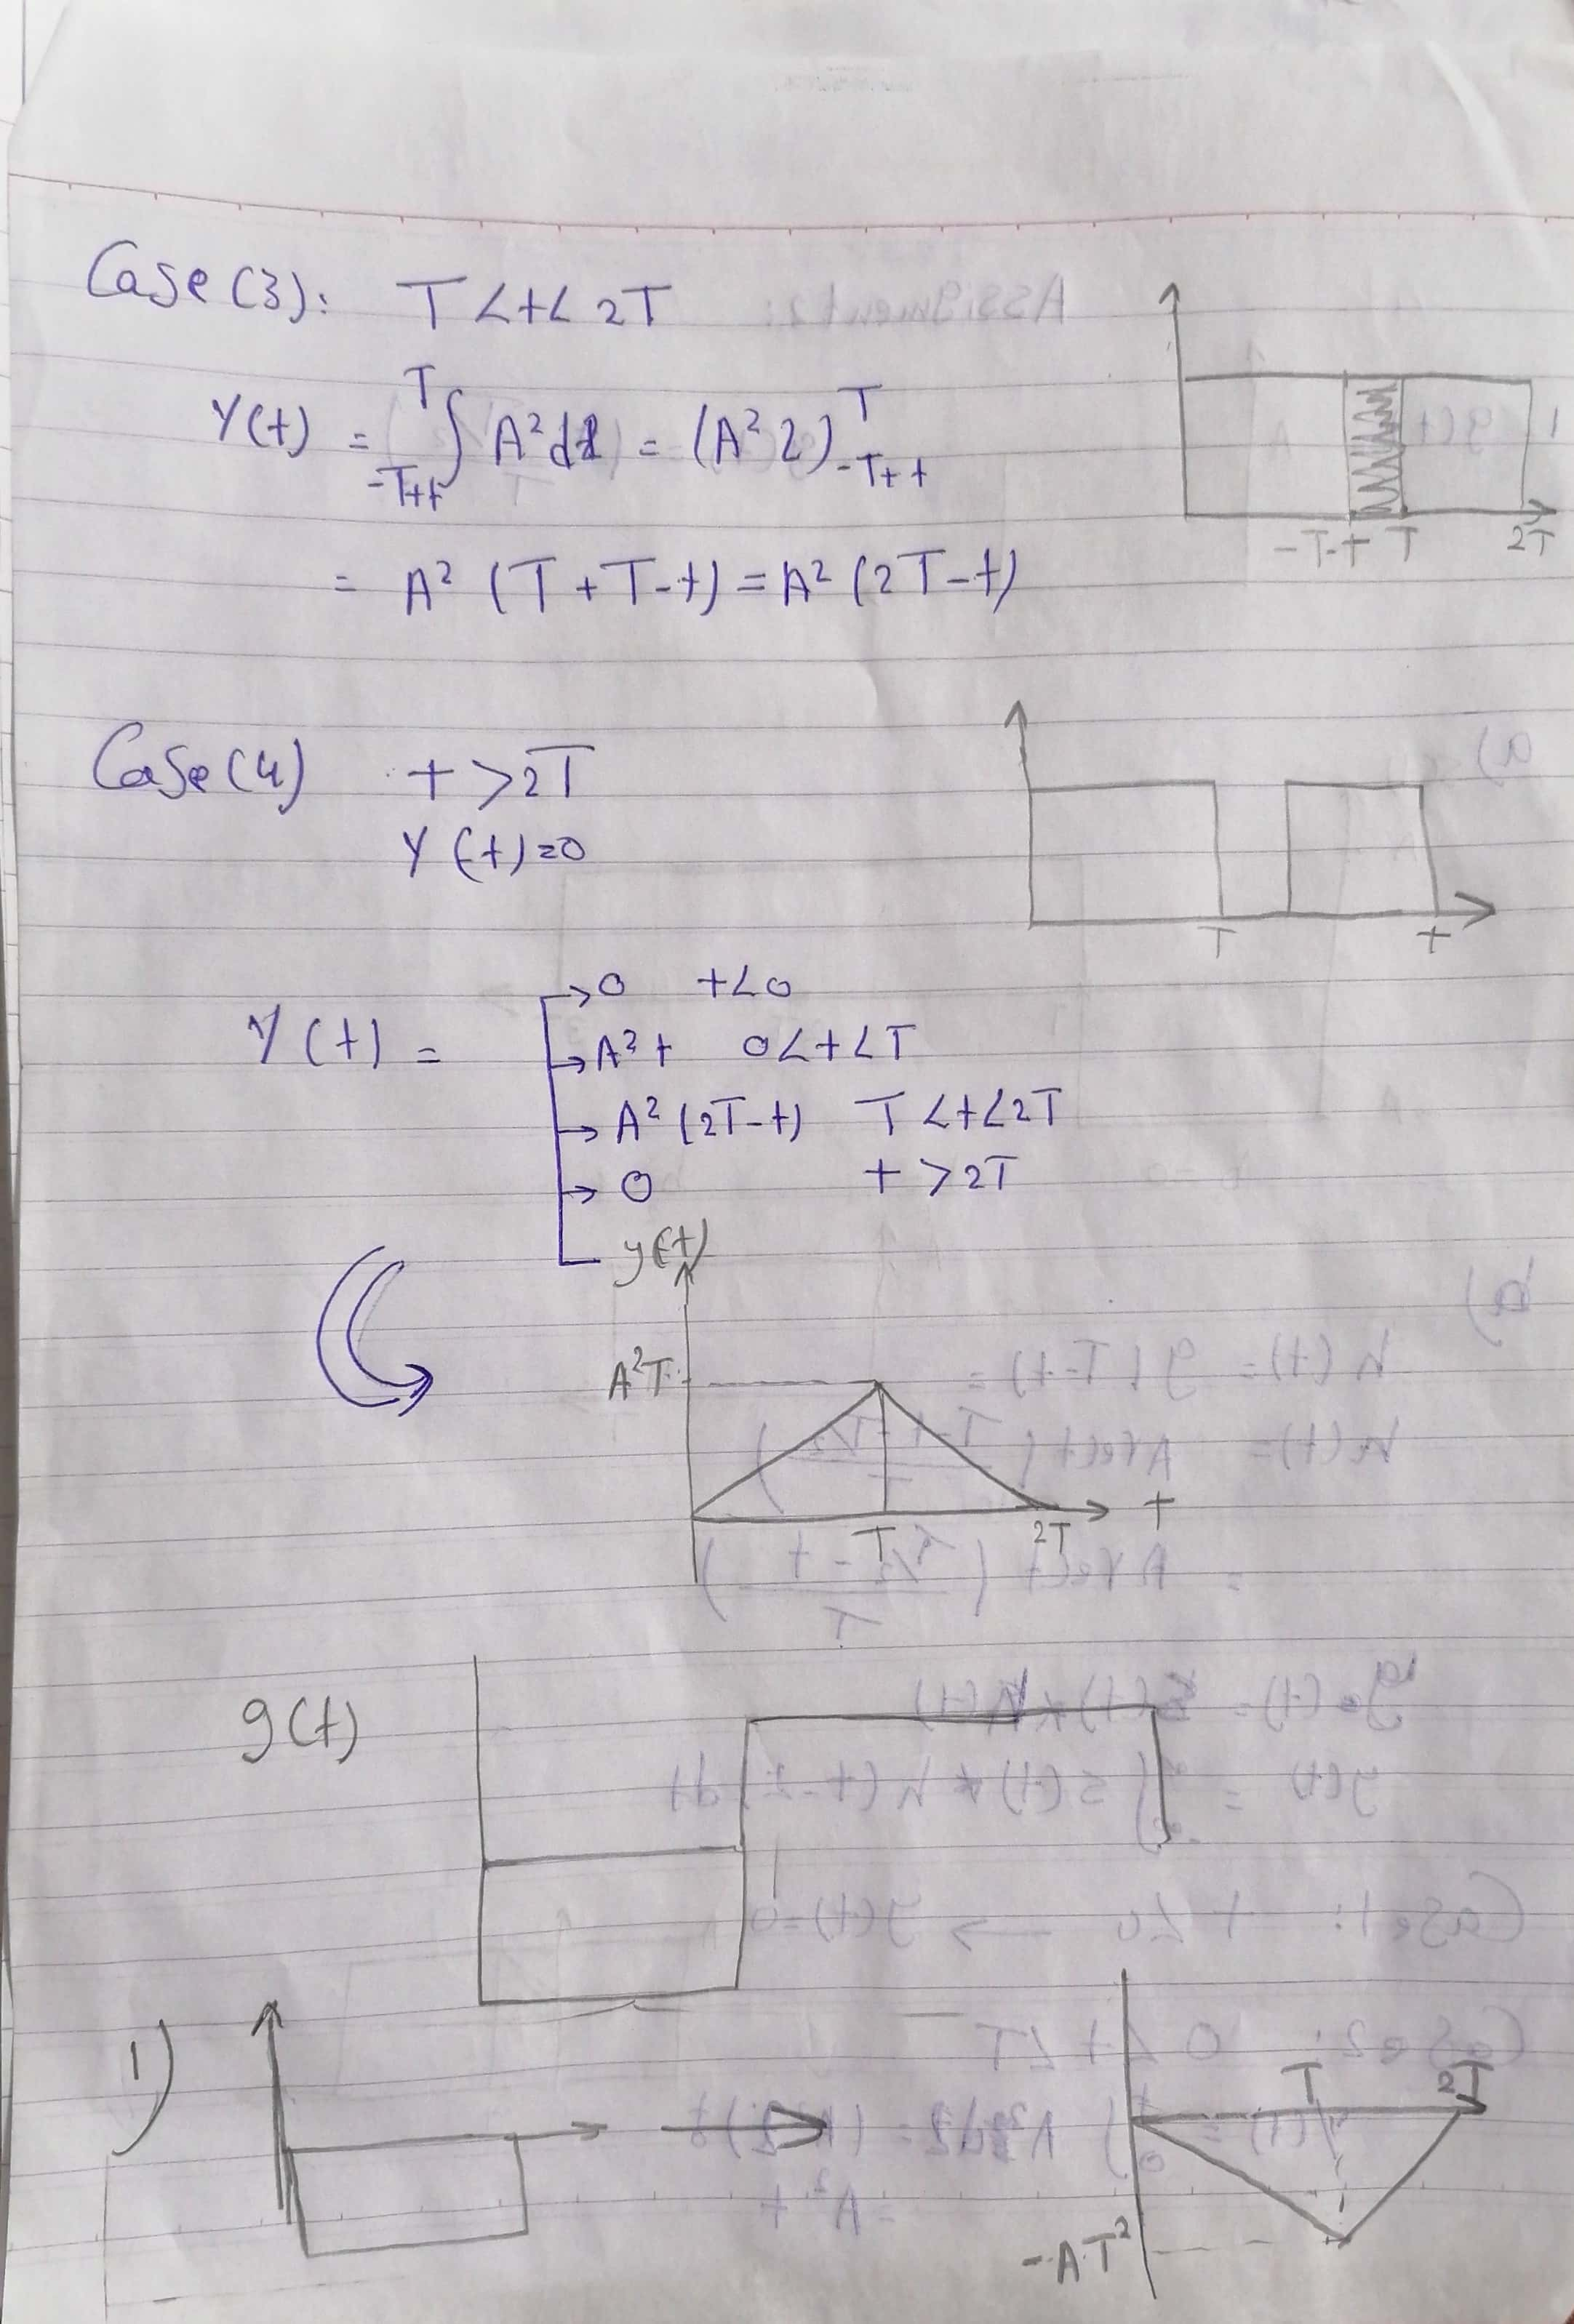 Case (3): T < t < 2T
Y(t) = ∫_{-T+t}^{T} A² dλ = (A² λ)_{-T+t}^{T}
= A² (T + T - t) = A² (2T - t)
-T-t T 2T
Case (4) t > 2T
Y(t) = 0
T t
Y(t) =
→ 0 t < 0
→ A² t 0 < t < T
→ A² (2T - t) T < t < 2T
→ 0 t > 2T
y(t)
A²T
T 2T t
g(t)
1)
T 2T
-AT²